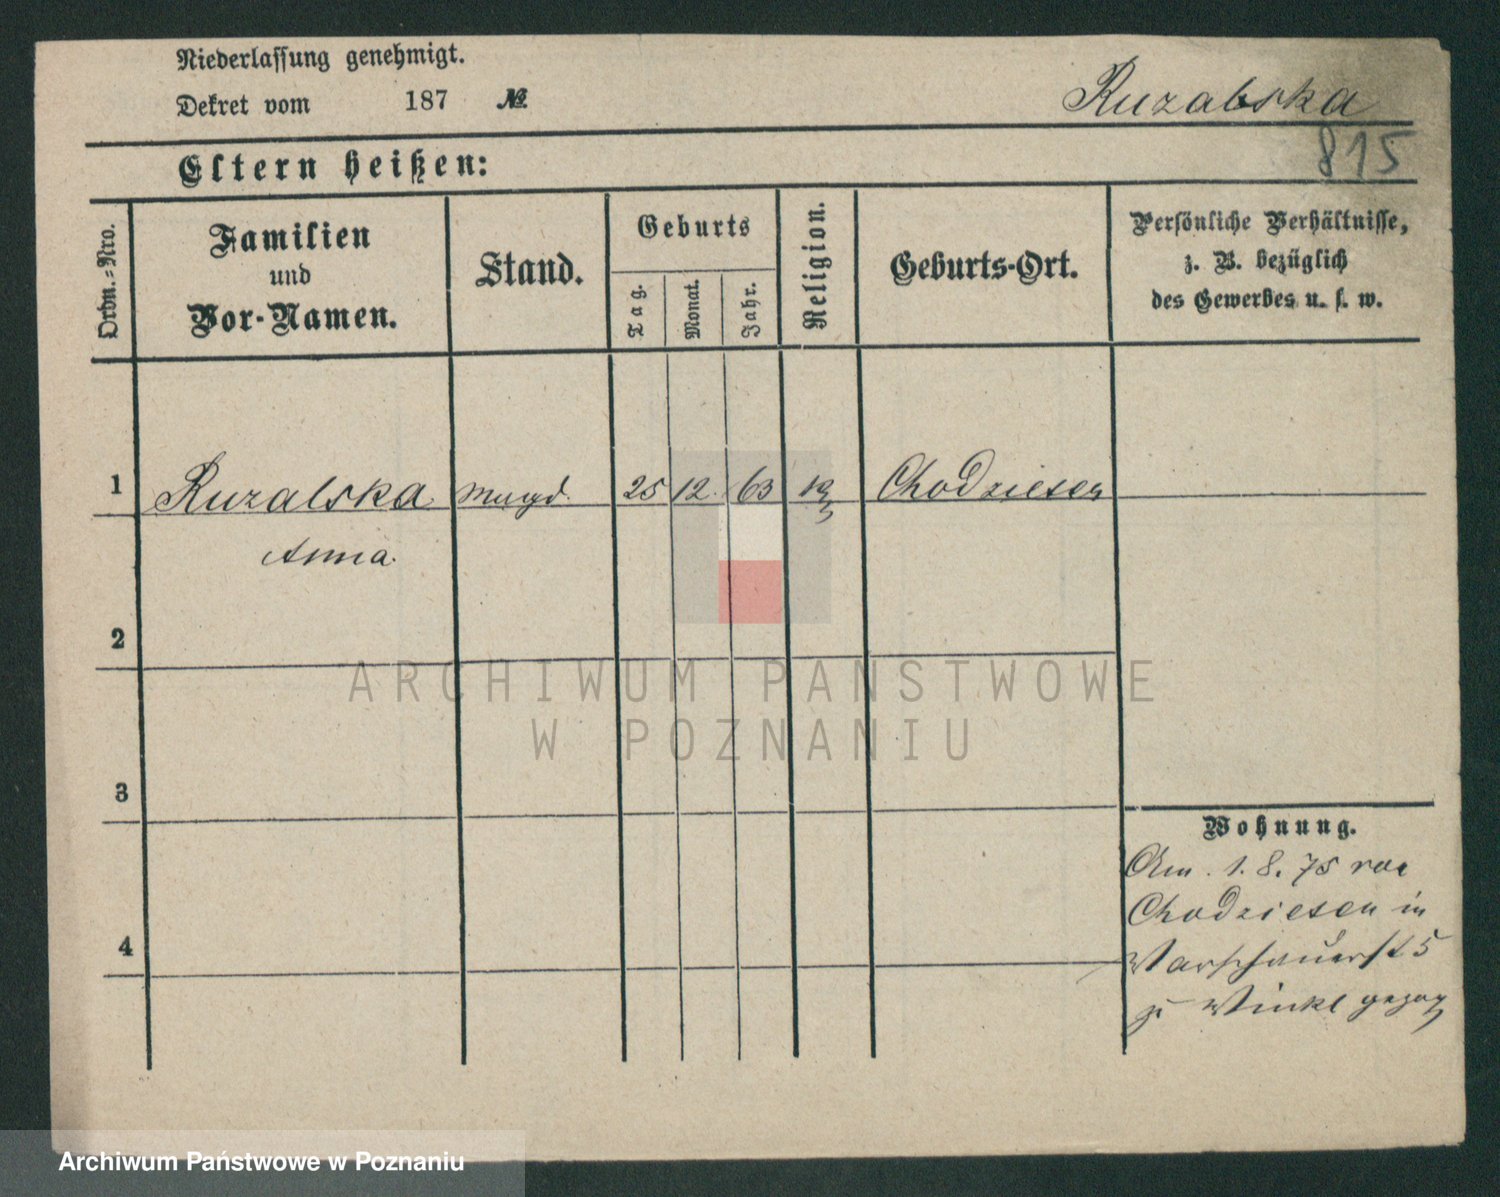 Niederlassung genehmigt.
Dekret vom 187 №
Ruzalska
815
Eltern heißen:
Ordn.-Nro.
Familien
und
Vor-Namen.
Stand.
Geburts
Tag.
Monat.
Jahr.
Religion.
Geburts-Ort.
Persönliche Verhältnisse,
z. B. bezüglich
des Gewerbes u. s. w.
1 Ruzalska Magd. 25 12. 63 Chodziesen
Anna.
2
ARCHIWUM PAŃSTWOWE
W POZNANIU
3
Wohnung.
Am. 1. 8. 75 von
Chodziesen in
Warschauerst 5
zu Winkl gezog
4
Archiwum Państwowe w Poznaniu